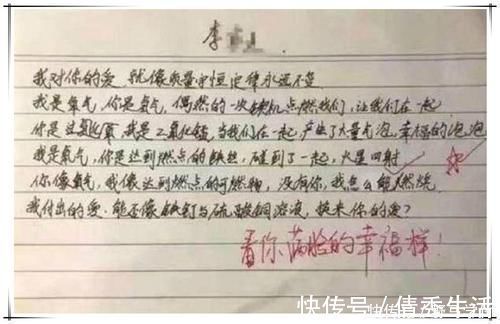 李
我对你的爱 就像质量守恒定律永远不变
我是氧气,你是氢气,偶然的一次契机点燃我们,让我们在一起
你是过氧化氢,我是二氧化锰,当我们在一起,产生了大量气泡,幸福的泡泡
我是氧气,你是达到燃点的铁丝,碰到了一起,火星四射
你像氧气,我像达到燃点的可燃物,没有你,我怎么能燃烧
我付出的爱,能否像铁钉与硫酸铜溶液,换来你的爱?
看你满脸的幸福样!
快传号/倩秀生活